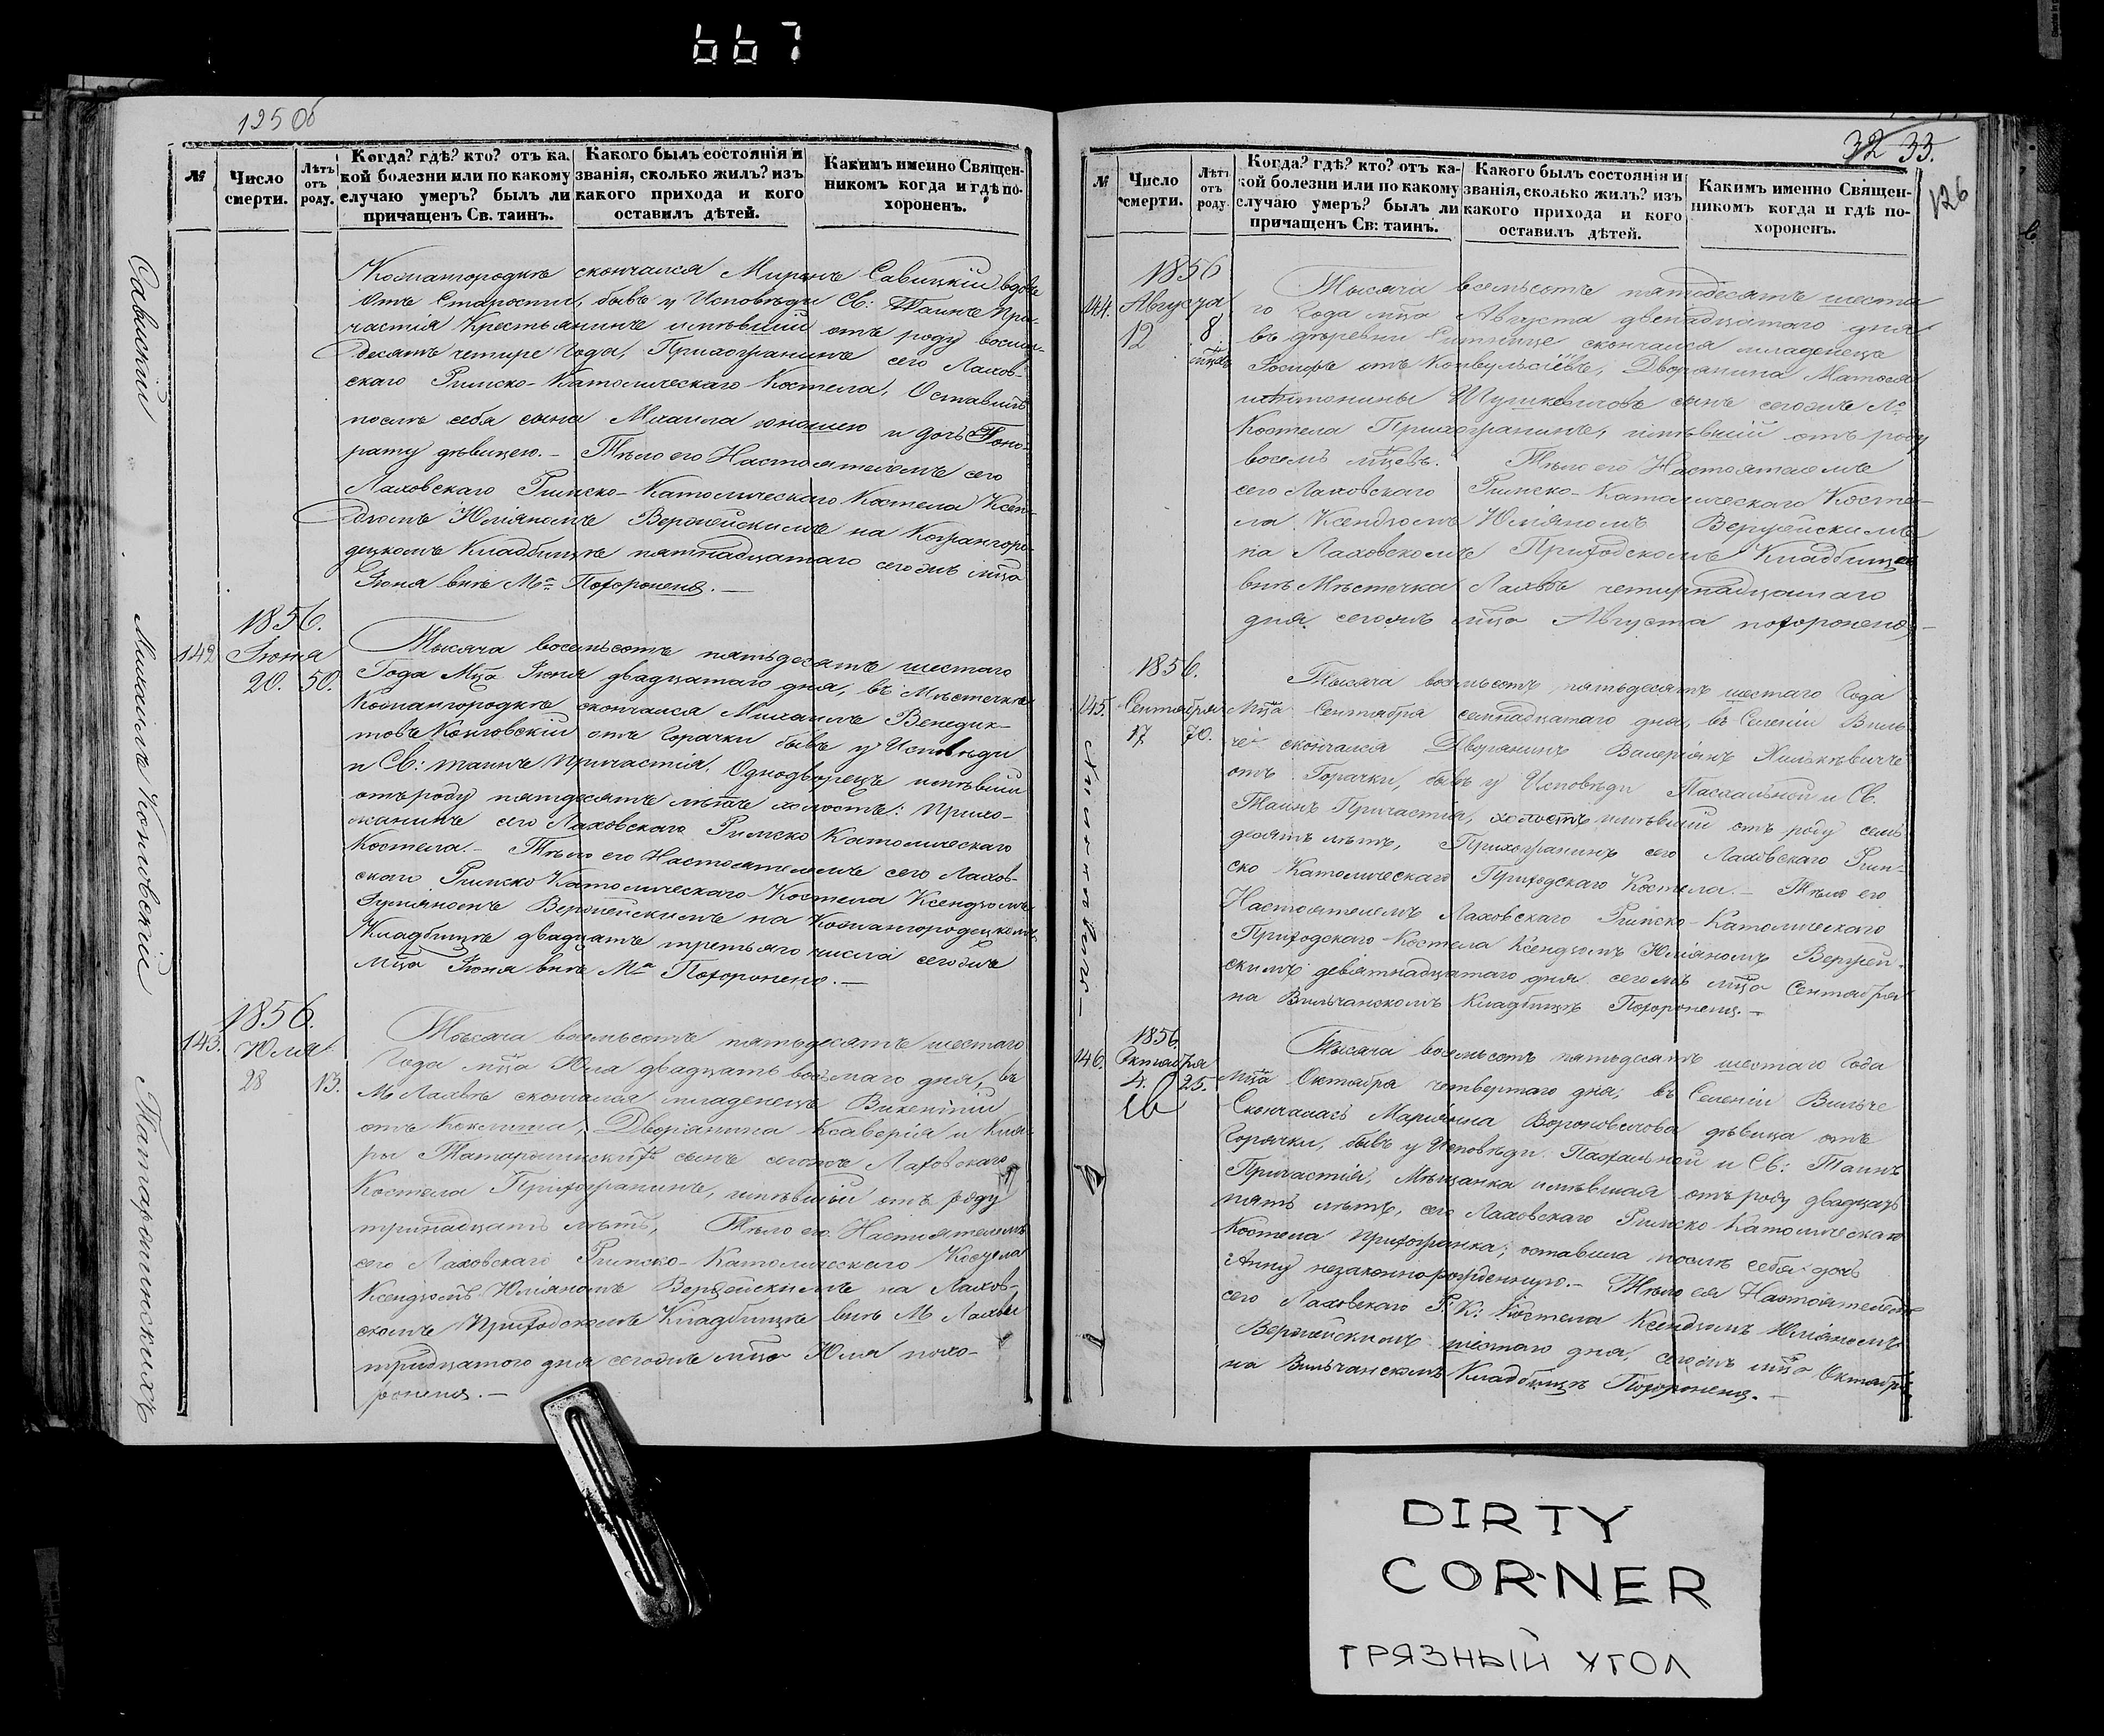 667
125 Об
№
Число смерти.
Лѣтъ отъ роду.
Когда? гдѣ? кто? отъ ка-
кой болезни или по какому
случаю умеръ? былъ ли
причащенъ Св. таинъ.
Какого былъ состоянія и
званія, сколько жилъ? изъ
какого прихода и кого
оставилъ дѣтей.
Какимъ именно Священ-
никомъ когда и гдѣ по-
хороненъ.
Савиский
скончался Миронъ Савицкій вдовъ
отъ Старости, бывъ у Исповѣди Св: Таинъ При-
частія Крестьянинъ имѣвшій отъ роду восми-
десятъ четире года, Прихожанинъ сего Лахов-
скаго Римско-Католическаго Костела, Оставилъ
послѣ себя сына Михаила юношею и дочь Гоно-
рату дѣвицею. — Тѣло его Настоятелемъ сего
Лаховскаго Римско-Католическаго Костела Ксен-
дзомъ Юліяномъ на
Кладбищѣ пятнадцатаго сегожъ мца
Іюня внѣ Мᵃ Похоронено. —
Михаилъ
142
1856.
Іюня
20. 50.
Тысяча восемьсотъ пятьдесятъ шестаго
Года Мца Іюня двадцатаго дня, въ Мѣстечкѣ
скончался Михаилъ Венедик-
товъ отъ Горачки бывъ у Исповѣди
и Св: таинъ Причастія, Однодворецъ имѣвшій
отъ роду пятдесятъ лѣтъ холостъ: Прихо-
жанинъ сего Лаховскаго Римско Католическаго
Костела. — Тѣло его Настоятелемъ сего Лахов-
скаго Римско Католическаго Костела Ксендзомъ
на
Кладбищѣ двадцать третьяго числа сегожъ
Мца Іюня внѣ Мᵃ Похоронено. —
143.
1856.
Юля
28 13.
Тысяча восемьсотъ пятьдесятъ шестаго
Года мца Юла двадцать восьмаго дня, въ
М Лахвѣ скончался младенецъ Викентій
отъ Коклюша, Дворянина Ксаверія и Кла-
ры сынъ сегоже Лаховскаго
Костела Прихожанинъ, имѣвшій отъ роду
тринадцать лѣтъ, Тѣло его Настоятелемъ
сего Лаховскаго Римско-Католическаго Костела
Ксендзомъ Юліяномъ на Лахов-
скомъ Приходскомъ Кладбищѣ внѣ М Лахвы
тридцатого дня сегожъ мца Юла похо-
ронено. —
32 33.
126
№
Число смерти.
Лѣтъ отъ роду.
Когда? гдѣ? кто? отъ ка-
кой болезни или по какому
случаю умеръ? былъ ли
причащенъ Св: таинъ.
Какого былъ состоянія и
званія, сколько жилъ? изъ
какого прихода и кого
оставилъ дѣтей.
Какимъ именно Священ-
никомъ когда и гдѣ по-
хороненъ.
1856
144. Августа
12 8
Тысяча восемьсотъ пятидесятъ шеста
го Года мца Августа двенадцатаго дня
въ деревни скончался младенецъ
Іосифъ отъ Конвульсіевъ, Дворянина
сынъ сегожъ
Костела Прихожанинъ, имѣвшій отъ роду
восемь мцевъ. Тѣло его Настоятелемъ
сего Лаховскаго Римско-Католическаго Косте-
ла Ксендзомъ Юліяномъ
на Лаховскомъ Приходскомъ Кладбищѣ
внѣ Мѣстечка Лахвы четырнадцатаго
дня сегожъ мца Августа похоронено —
1856.
145. Сентября
17 70.
Тысяча восемьсотъ пятьдесятъ шестаго Года
Мца Сентября семнадцатаго дня, въ Селеніи Виль-
че скончался Дворянинъ Валеріянъ
отъ Горачки, бывъ у Исповѣди Пасхальной и Св.
Таинъ Причастія, холостъ имѣвшій отъ роду семь
десятъ лѣтъ, Прихожанинъ сего Лаховскаго Рим-
ско Католическаго Приходскаго Костела. — Тѣло его
Настоятелемъ Лаховскаго Римско-Католическаго
Приходскаго Костела Ксендзомъ Юліяномъ
девятнадцатаго дня сегожъ мца Сентября
на Вильчанскомъ Кладбищѣ Похоронено. —
1856.
146. Октября
4. 25.
Тысяча восемьсотъ пятьдесятъ шестаго Года
Мца Октября четвертаго дня, въ Селеніи Вильче
Скончалась Маріянна Вороновичова дѣвица отъ
Горячки, бывъ у Исповѣди Пасхальной и Св: Таинъ
Причастія, Мѣщанка имѣвшая отъ роду двадцать
пять лѣтъ, сего Лаховскаго Римско Католическаго
Костела прихожанка; оставила послѣ себя дочь
Анну незаконнорожденную. — Тѣло ея Настоятелемъ
сего Лаховскаго Р: К: Костела Ксендзомъ Юліяномъ
шестаго дня, сегожъ мца Октября
на Вильчанскомъ Кладбищѣ Похоронено. —
DIRTY
CORNER
ГРЯЗНЫЙ УГОЛ